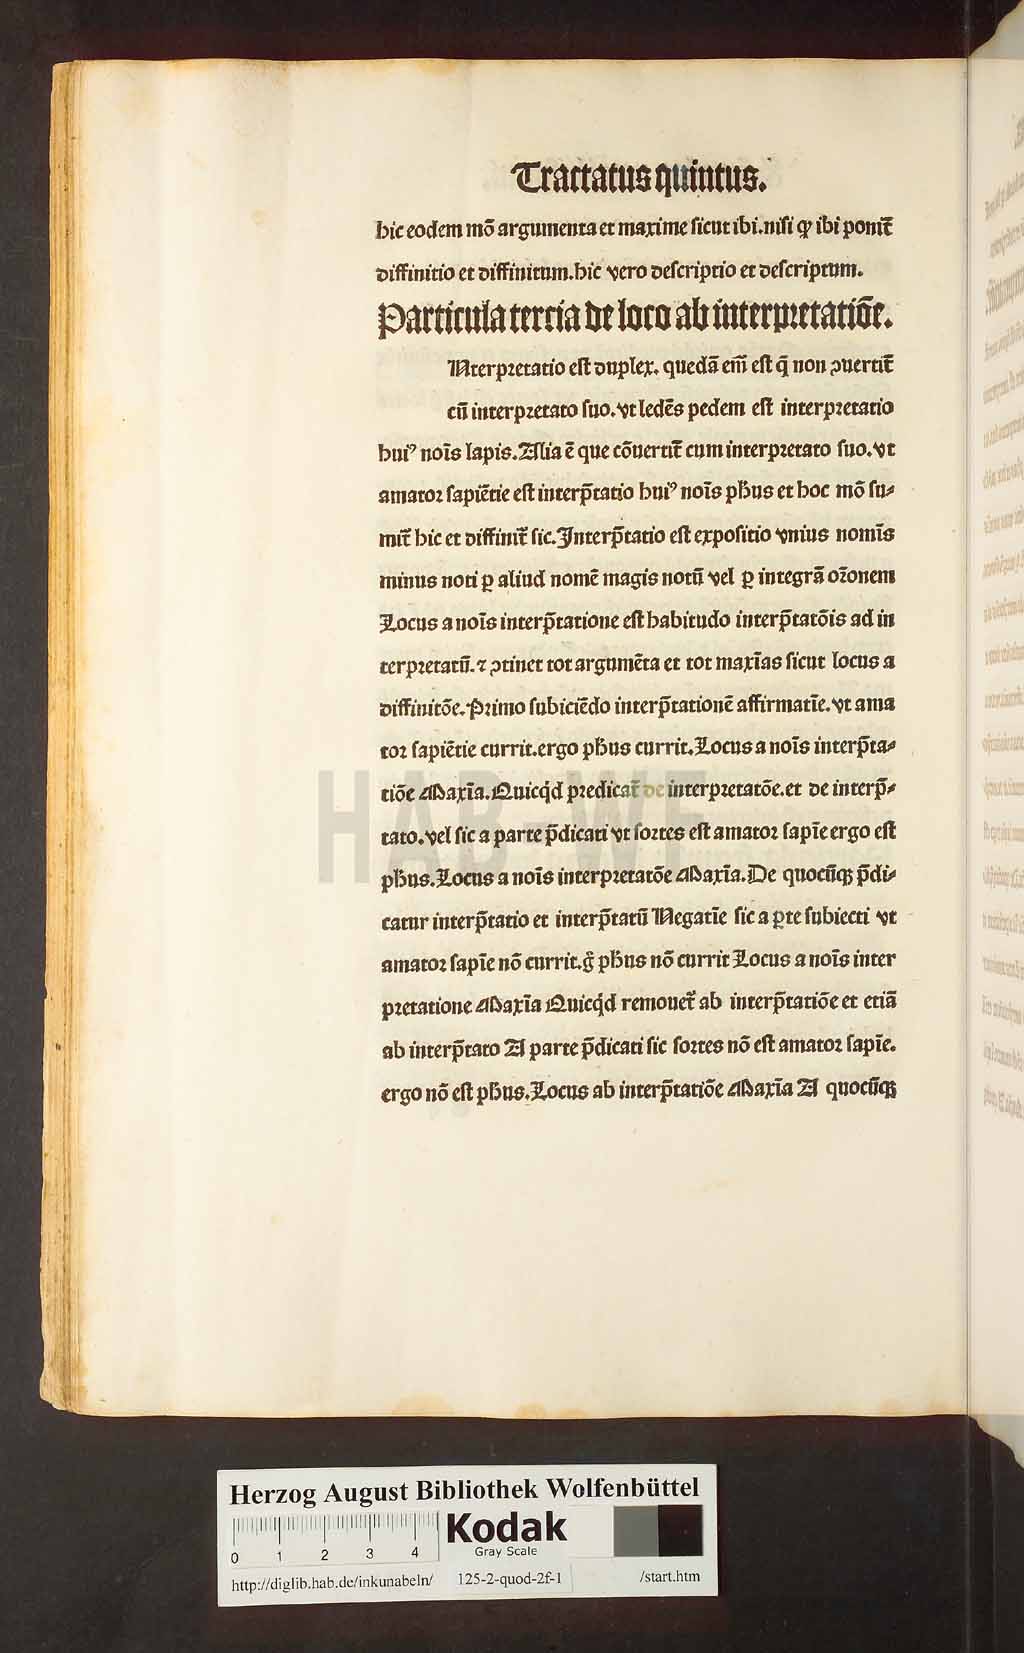 Tractatus quintus.
hic eodem mō argumenta et maxime sicut ibi. nisi ꝙ ibi ponit᷑
diffinitio et diffinitum. hic vero descriptio et descriptum.
Particula tercia de loco ab interpretatiōe.
Nterpretatio est duplex. quedā em̄ est q̄ non ꝯuertit᷑
cū interpretato suo. vt ledēs pedem est interpretatio
huiꝰ noīs lapis. Alia ē que cōuertit᷑ cum interpretato suo. vt
amator sapiētie est interp̄tatio huiꝰ noīs ph̄us et hoc mō su⸗
mit᷑ hic et diffinit᷑ sic. Interp̄tatio est expositio vnius nomīs
minus noti ꝑ aliud nomē magis notū vel ꝑ integrā or̄onem
Locus a noīs interp̄tatione est habitudo interp̄tatōis ad in
terpretatū. ⁊ ꝯtinet tot argumēta et tot maxīas sicut locus a
diffinitōe. Primo subiciēdo interp̄tationē affirmatīe. vt ama
tor sapiētie currit. ergo ph̄us currit. Locus a noīs interp̄ta⸗
tiōe Maxīa. Quicq̇d predicat᷑ de interpretatōe. et de interp̄⸗
tato. vel sic a parte p̄dicati vt sortes est amator sapīe ergo est
ph̄us. Locus a noīs interpretatōe Maxīa. De quocūqꝫ p̄di⸗
catur interp̄tatio et interp̄tatū Negatīe sic a ꝑte subiecti vt
amator sapīe nō currit. g̊ ph̄us nō currit Locus a noīs inter
pretatione Maxīa Quicq̇d remouet᷑ ab interp̄tatiōe et etiā
ab interp̄tato A parte p̄dicati sic sortes nō est amator sapīe.
ergo nō est ph̄us. Locus ab interp̄tatiōe Maxīa A quocūqꝫ
HAB - WF
Herzog August Bibliothek Wolfenbüttel
0 1 2 3 4
Kodak
Gray Scale
http://diglib.hab.de/inkunabeln/ 125-2-quod-2f-1 /start.htm